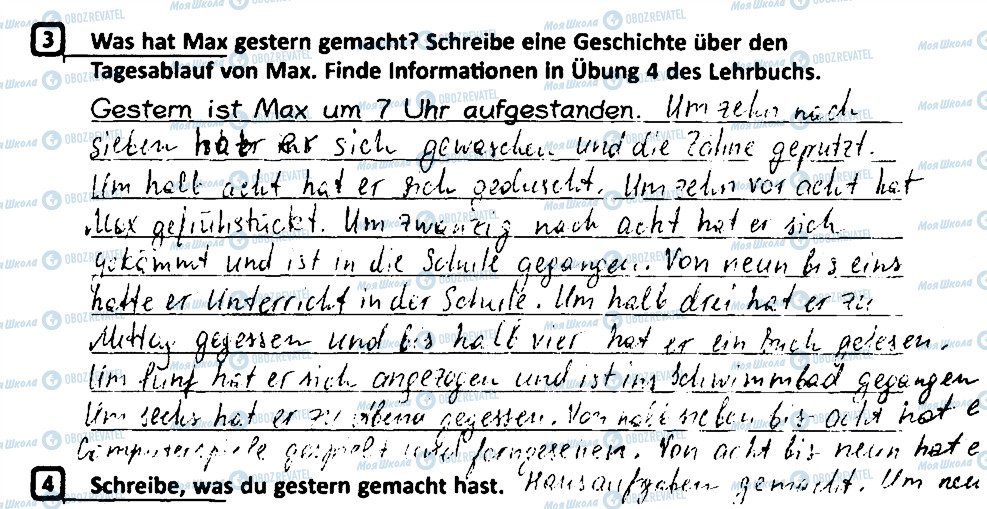 3 Was hat Max gestern gemacht? Schreibe eine Geschichte über den
Tagesablauf von Max. Finde Informationen in Übung 4 des Lehrbuchs.
Gestern ist Max um 7 Uhr aufgestanden. Um zehn nach
sieben hat er sich gewaschen und die Zähne geputzt.
Um halb acht hat er sich geduscht. Um zehn vor acht hat
Max gefrühstückt. Um zwanzig nach acht hat er sich
gekämmt und ist in die Schule gegangen. Von neun bis eins
hatte er Unterricht in der Schule. Um halb drei hat er zu
Mittag gegessen und bis halb vier hat er ein Buch gelesen.
Um fünf hat er sich angezogen und ist ins Schwimmbad gegangen
Um sechs hat er zu Abend gegessen. Von halb sieben bis acht hat e
Computerspiele gespielt und ferngesehen. Von acht bis neun hat e
4 Schreibe, was du gestern gemacht hast. Hausaufgaben gemacht. Um neu